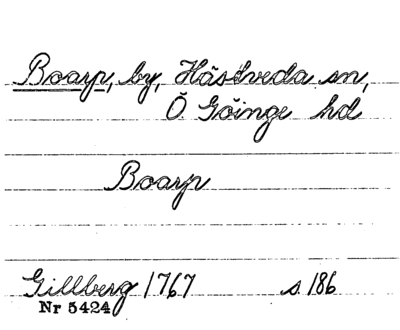 Boarp, by, Hästveda sn,
Ö Göinge hd
Boarp
Gillberg 1767 s 186
Nr 5424